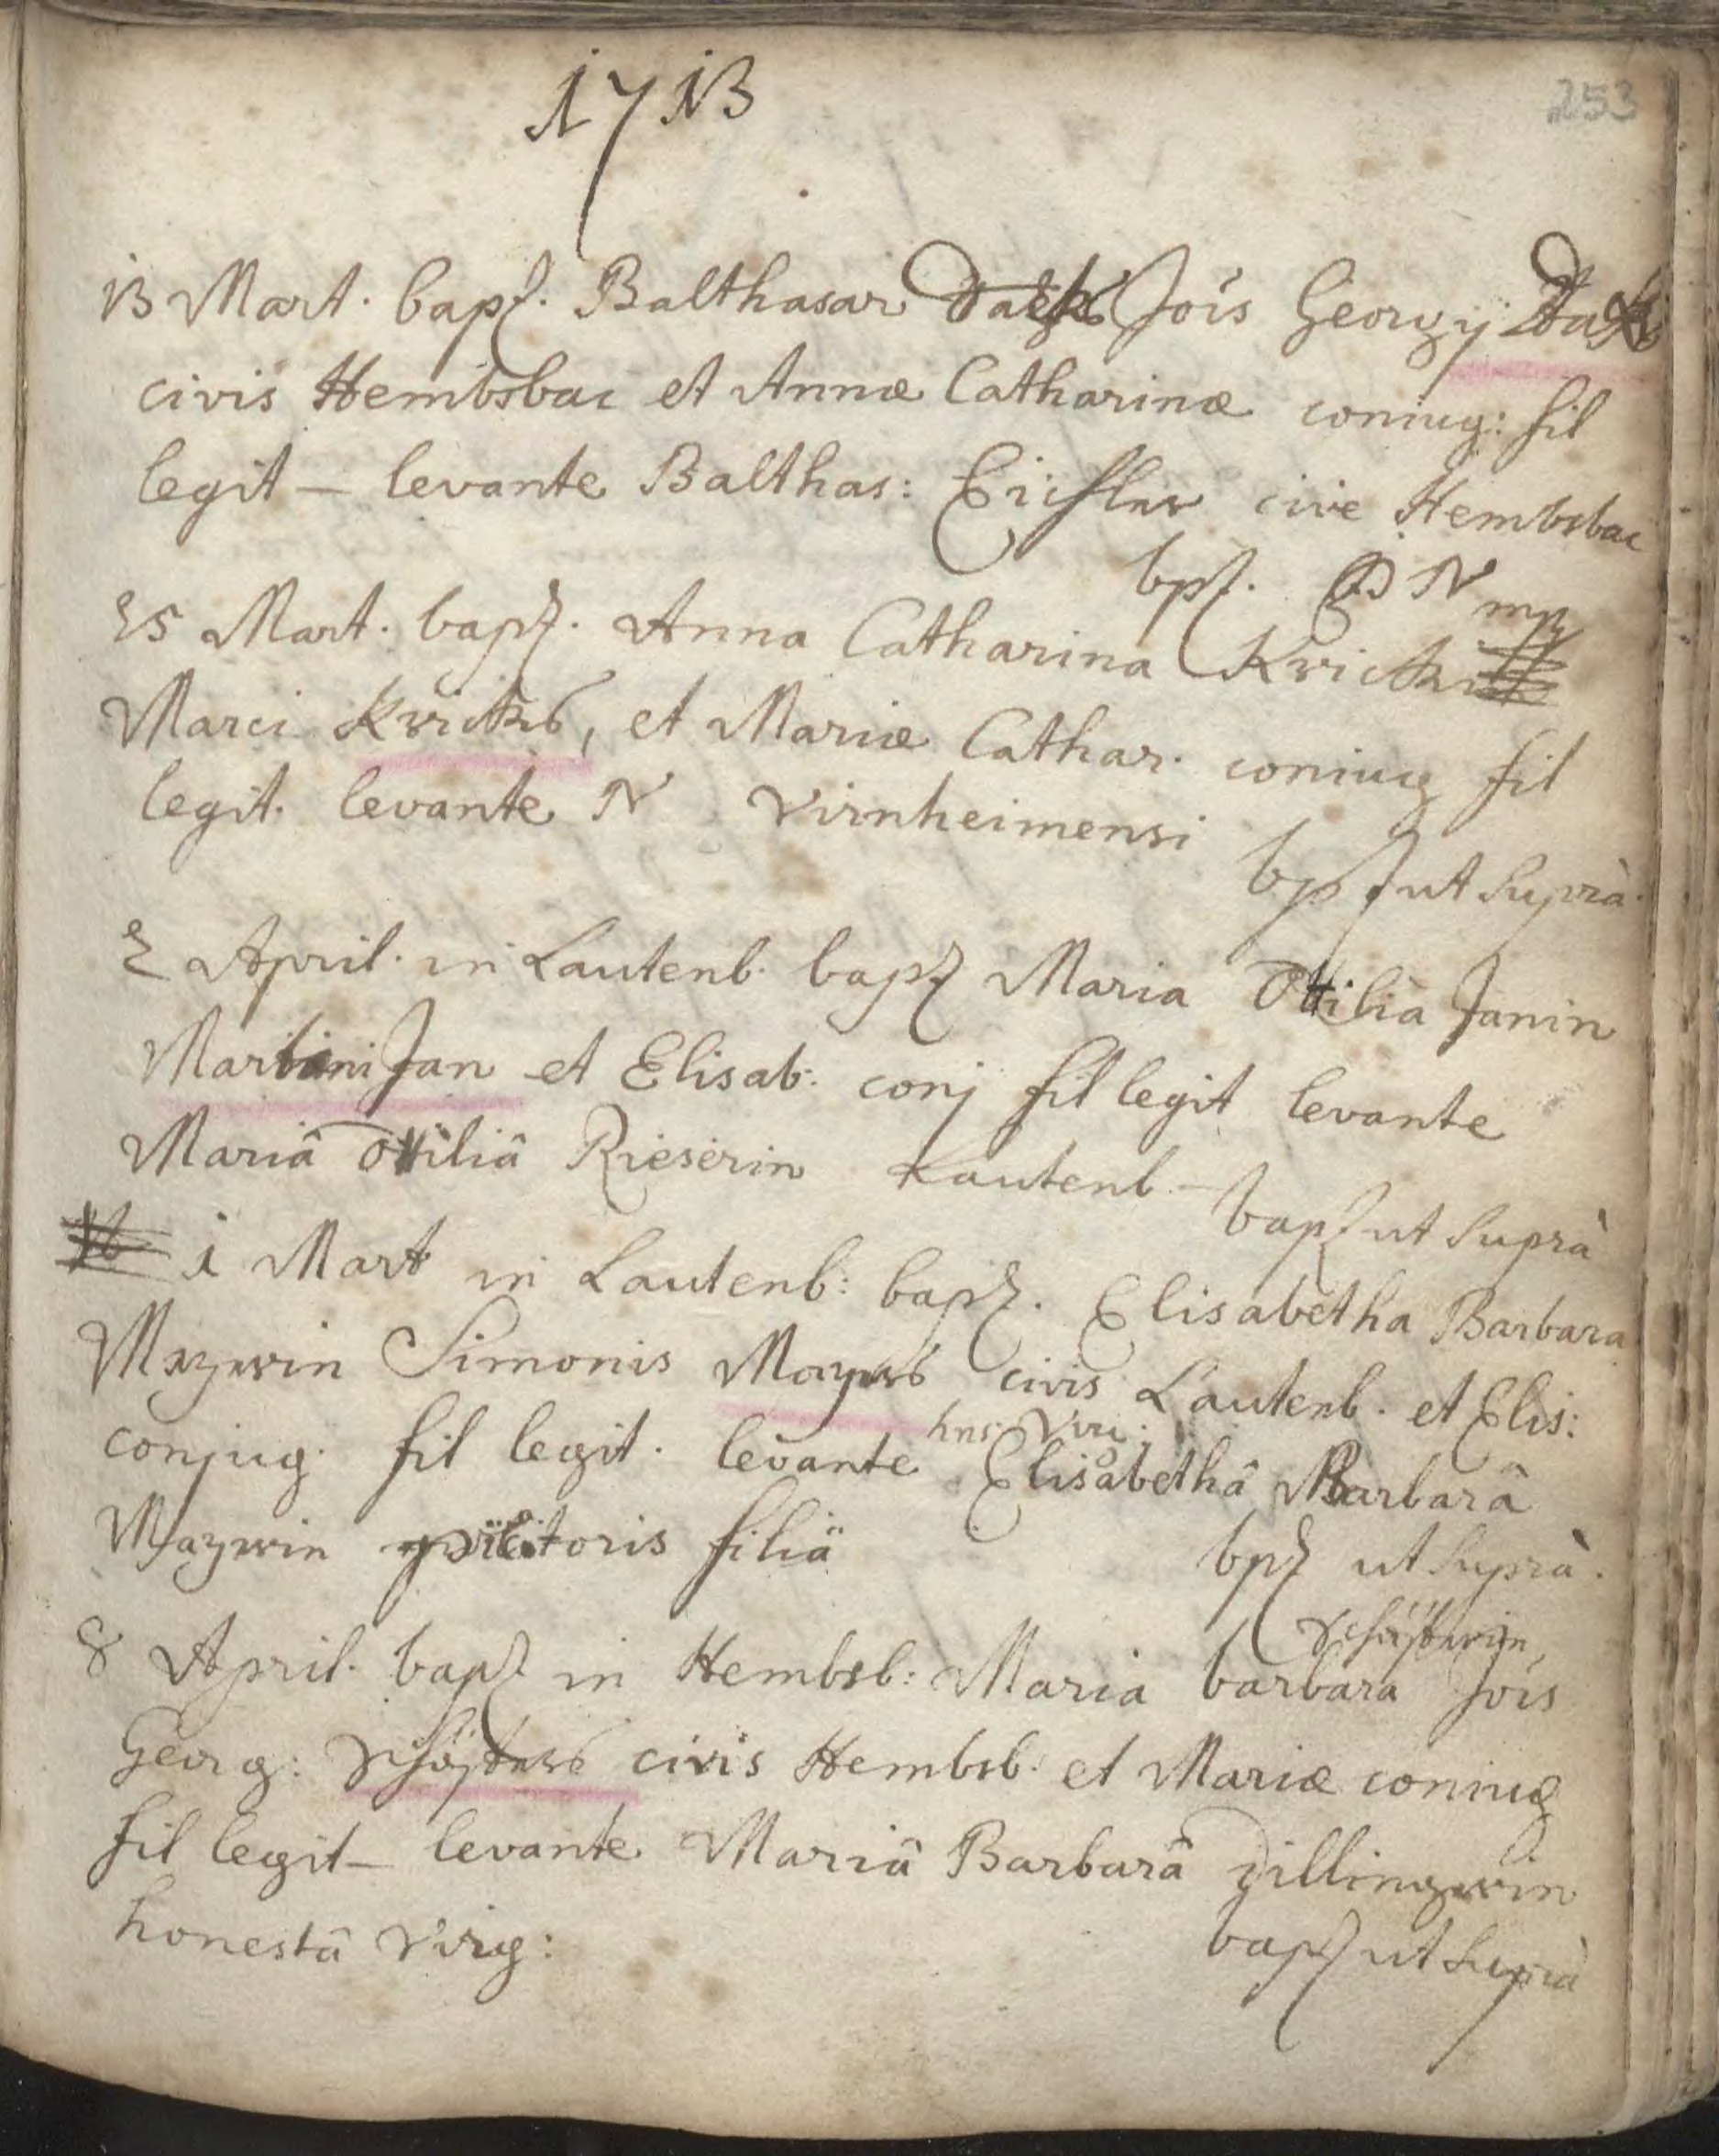 1713
253
13 Mart. bapt. Balthasar Jois Georgij Dacks
civis Hembsbac et Annæ Catharinæ coniug: fil
legit – levante Balthas: Eichler cive Hembsbac
bpt. P N mp
25 Mart. bapt. Anna Catharina
Marci Krickes, et Mariæ Cathar. coniug fil
legit. levante N Virnheimensi
bpt ut Suprà.
2 April. in Lautenb. bapt Maria Ottilia Janin
Martini Jan et Elisab: conj fil legit levante
Mariâ Ottiliâ Rieserin Lautenb –
bapt ut Suprà
1 Mart in Lautenb: bapt. Elisabetha Barbara
Mayerin Simonis Mayers civis Lautenb. et Elis:
conjug. fil legit. levante Elisabethâ Barbarâ
Mayerin filiâ
bpt ut Suprà.
8 April. bapt in Hembsb: Maria barbara Jois
Georg: civis Hembsb. et Mariæ coniug
fil legit – levante Mariâ Barbarâ Zillingerin
honestâ Virg:
bapt ut Suprà